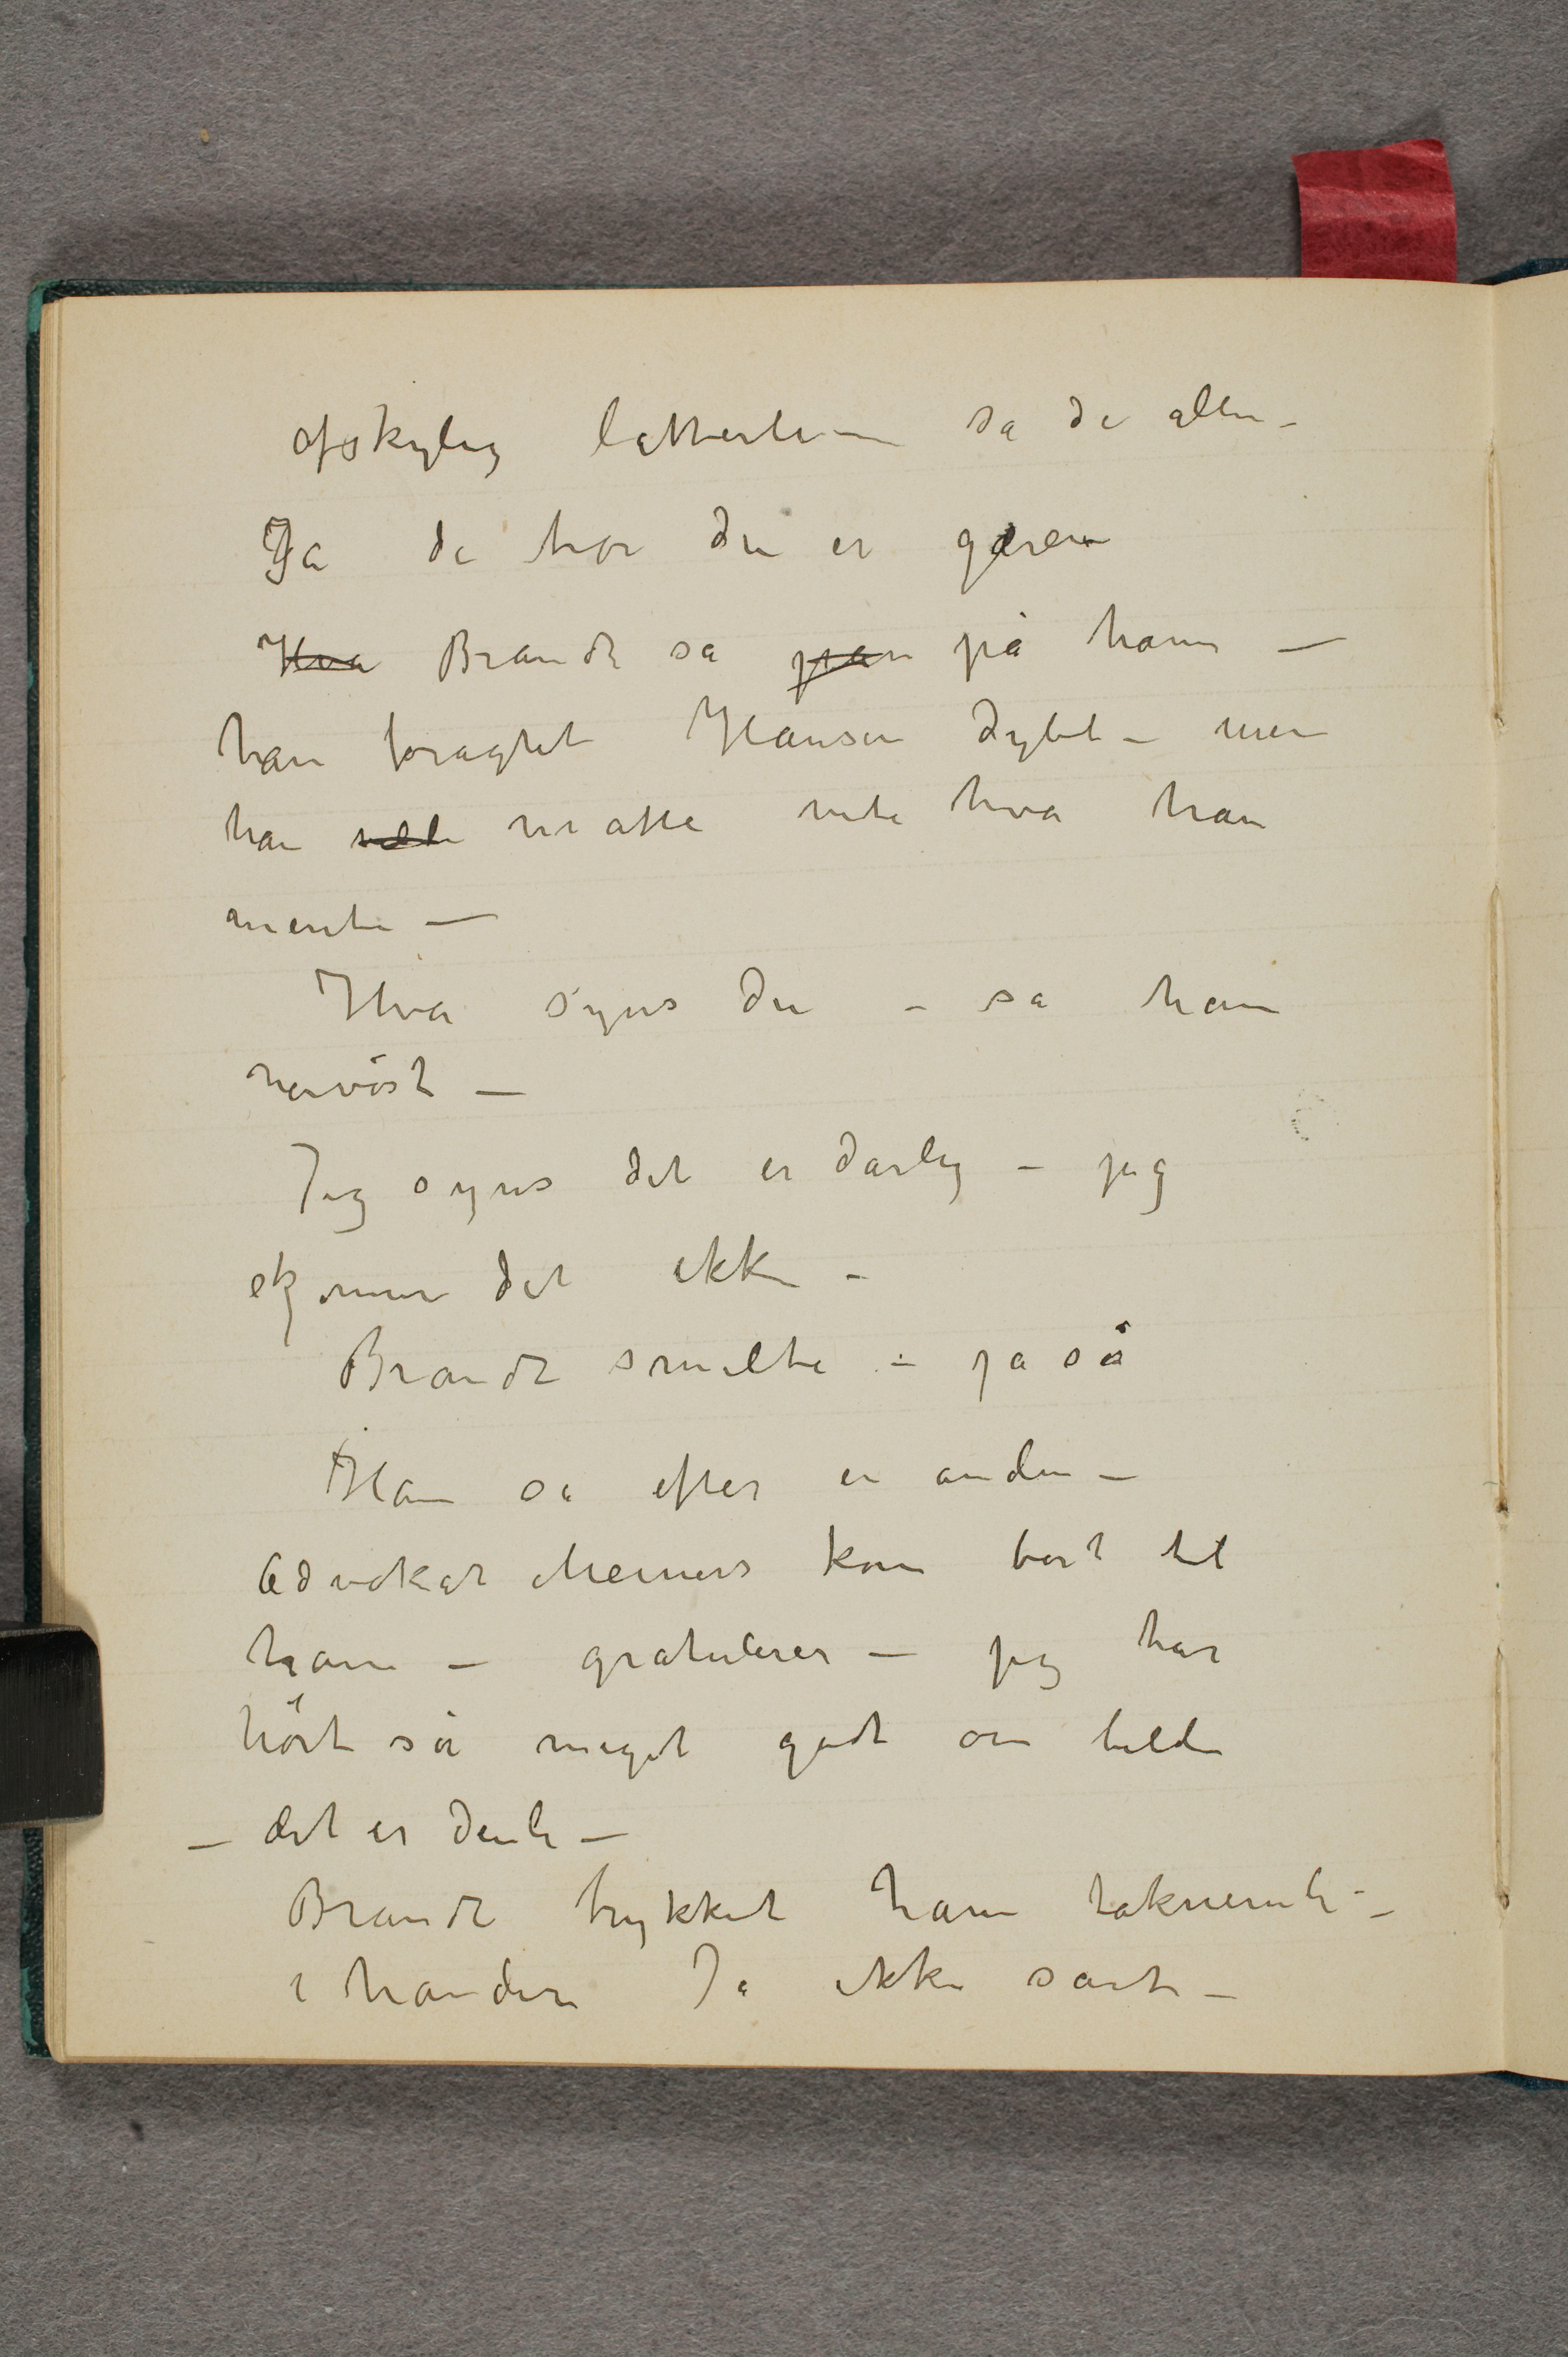 afskylig latterli — sa de allen –
Ja de tror du er galen
Hva Brandt sa pan på ham —
han foragtet Hansen dybt – men
han vilde måtte vite hva han
mente —
Hva syns du – sa han
nervöst –
Jeg syns det er dårlig – jeg
skjønner det ikke –
Brandt smilte – ja så
Han så efter en anden –
Advokat Meiners kom bort til
ham – gratulerer — jeg har
hört så meget godt om billedet
– det er deili –
Brandt trykket ham taknemli –
i handen Ja ikke sant –